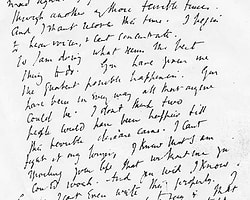 through another of those terrible times.
And I shan't recover this time. I begin
to hear voices, & can't concentrate.
So I am doing what seems the best
thing to do. You have given me
the greatest possible happiness. You
have been in every way all that anyone
could be. I don't think two
people could have been happier till
this terrible disease came. I can't
fight it any longer, I know that I am
spoiling your life, that without me you
could work. And you will I know.
can't even write this properly. I